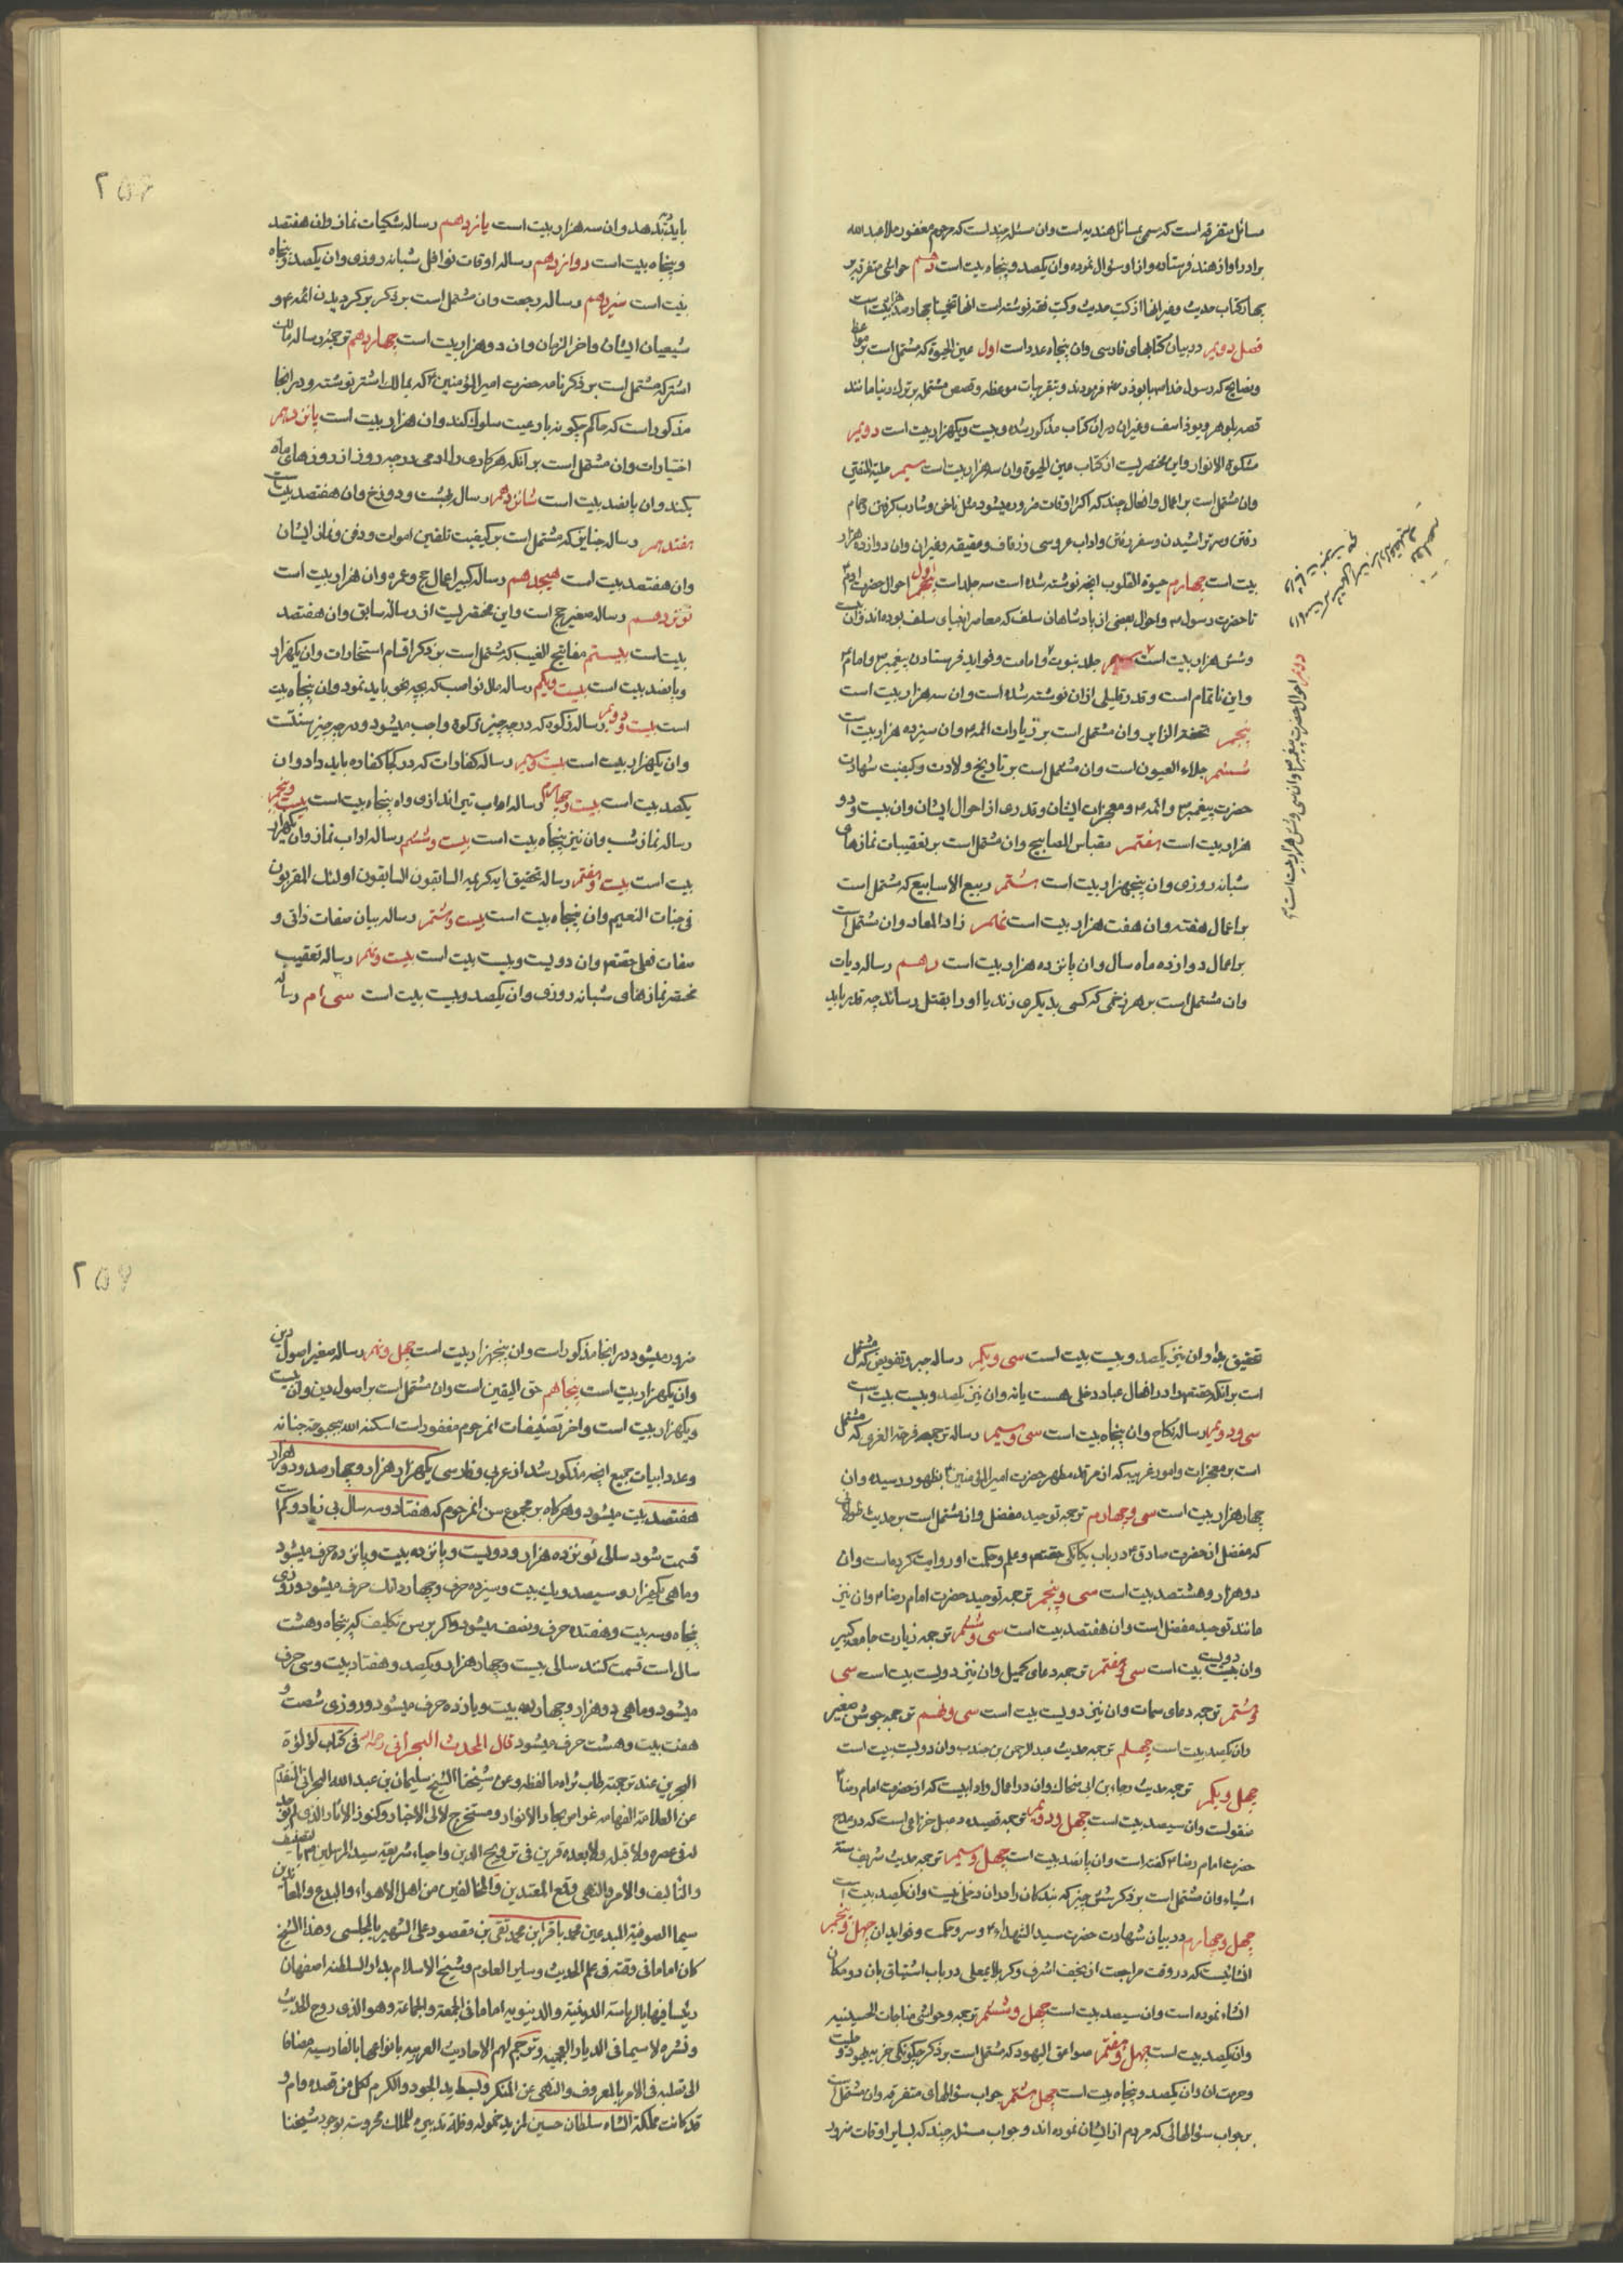 مسائل متفرقه است که مسمی بمسائل هندیه است وان مسئله چند است که مرحوم مغفور ملا عبد الله
برادر او از هند فرستاده و از او سؤال نموده وان یکصد و پنجاه بیت است دهم حواشی متفرقه بر
چهار کتاب حدیث و غیر انها از کتب حدیث و کتب فقه نوشته است انها تخمینا چهار صد هزار بیت است
فصل دویم در بیان کتابهای فارسی وان پنجاه عدد است اول عین الحیوة که مشتمل است بر مواعظ
و نصایح که رسول خدا ص بابوذر ره فرمودند و بتقریبات موعظه و قصص مشتمله بر ترک دنیا مانند
قصه بلوهر و یوذاسف و غیر ان در ان کتاب مذکور شده و بیست و یکهزار بیت است دویم
مشکوة الانوار و این مختصریست از کتاب عین الحیوة وان سه هزار بیت است سیم حلیة المتقین
وان مشتمل است بر اعمال و افعال چند که اکثر اوقات ضرور میشود مثل ناخن و شارب گرفتن و حمام
رفتن و سر تراشیدن و سفر رفتن و اداب عروسی و زفاف و عقیقه و غیر ان وان دوازده هزار
بیت است چهارم حیوة القلوب انچه نوشته شده است سه جلد است اول احوال حضرت ادم
تا حضرت رسول ص و احوال بعضی از پادشاهان سلف که معاصر انبیای سلف بوده اند وان
و شش هزار بیت است سیم جلد نبوت و امامت و فواید فرستادن پیغمبر ص و امام ع
و این ناتمام است و قدر قلیلی از ان نوشته شده است وان سه هزار بیت است
پنجم تحفة الزایر وان مشتمل است بر زیارات ائمه ع وان سیزده هزار بیت است
ششم جلاء العیون است وان مشتمل است بر تاریخ ولادت و کیفیت شهادت
حضرت پیغمبر ص و ائمه ع و معجزات ایشان و قدری از احوال ایشان وان بیست و دو
هزار بیت است هفتم مقباس المصابیح وان مشتمل است بر تعقیبات نمازهای
شبانه روزی وان پنجهزار بیت است هشتم ربیع الاسابیع که مشتمل است
بر اعمال هفته وان هفت هزار بیت است نهم زاد المعاد وان مشتمل است
بر اعمال دوازده ماه سال وان پانزده هزار بیت است دهم رساله دیات
وان مشتمل است بر هر زخمی که کسی بدیگری زند یا او را بقتل رساند چه قدر باید
دویم احوال حضرت پیغمبر ص وان سی و شش هزار بیت است
باید بدهد وان سه هزار بیت است یازدهم رساله شکیات نماز وان هفتصد
و پنجاه بیت است دوازدهم رساله اوقات نوافل شبانه روزی وان یکصد و پنجاه
بیت است سیزدهم رساله رجعت وان مشتمل است بر ذکر برگردیدن ائمه ع و
شیعیان ایشان در اخر الزمان وان دو هزار بیت است چهاردهم ترجمه رساله مالک
اشتر که مشتمل است بر ذکر نامه حضرت امیر المؤمنین ع که بمالک اشتر نوشته و در انجا
مذکور است که حاکم چگونه با رعیت سلوک کند وان هزار بیت است پانزدهم
اختیارات وان مشتمل است بر آنکه هر کاری را ادمی در چه روز از روزهای ماه
بکند وان پانصد بیت است شانزدهم رساله بهشت و دوزخ وان هفتصد بیت
هفدهم رساله جنایز که مشتمل است بر کیفیت تلقین اموات و دفن و نماز ایشان
وان هفتصد بیت است هیجدهم رساله کبیر اعمال حج و عمره وان هزار بیت است
نوزدهم رساله صغیر حج است و این مختصریست از رساله سابق وان هفتصد
بیت است بیستم مفاتیح الغیب که مشتمل است بر ذکر اقسام استخارات وان یکهزار
و پانصد بیت است بیست ویکم رساله مال نواصب که بچه نحو باید نمود وان پنجاه بیت
است بیست ودویم رساله زکوة که در چه چیز زکوة واجب میشود و در چه چیز سنتست
وان یکهزار بیت است بیست وسیم رساله کفارات که در کجا کفاره باید داد وان
یکصد بیت است بیست وچهارم رساله اداب تیر اندازی وان پنجاه بیت است بیست وپنجم
رساله نماز شب وان نیز پنجاه بیت است بیست وششم رساله اداب نماز وان یکهزار
بیت است بیست وهفتم رساله تحقیق ایه کریمه السابقون السابقون اولئک المقربون
فی جنات النعیم وان پنجاه بیت است بیست وهشتم رساله بیان صفات ذاتی و
صفات فعلی حقتعالی وان دویست و بیست بیت است بیست ونهم رساله تعقیب
مختصر نمازهای شبانه روزی وان یکصد و بیست بیت است سی ام رساله
۲۵۶
تحقیق بداء وان نیز یکصد و بیست بیت است سی ویکم رساله جبر و تفویض که مشتمل
است بر انکه حقتعالی را در افعال عباد دخلی هست یا نه وان نیز یکصد و بیست بیت است
سی ودویم رساله نکاح وان پنجاه بیت است سی وسیم رساله ترجمه فرحة الغری که مشتمل
است بر معجزات و امور غریبه که از مرقد مطهر حضرت امیر المؤمنین ع بظهور رسیده وان
چهار هزار بیت است سی وچهارم ترجمه توحید مفضل وان مشتمل است بر حدیث طولانی
که مفضل از حضرت صادق ع در باب یگانگی حقتعالی و علم و حکمت او روایت کرده است وان
دو هزار و هشتصد بیت است سی وپنجم ترجمه توحید حضرت امام رضا ع وان نیز
مانند توحید مفضل است وان هفتصد بیت است سی وششم ترجمه زیارت جامعه کبیر
وان دویست بیت است سی وهفتم ترجمه دعای کمیل وان نیز دویست بیت است سی
وهشتم ترجمه دعای سمات وان نیز دویست بیت است سی ونهم ترجمه جوشن صغیر
وان یکصد بیت است چهلم ترجمه حدیث عبد الرحمن بن جندب وان دویست بیت است
چهل ویکم ترجمه حدیث رجاء بن ابی ضحاک وان در اعمال و ادابیست که از حضرت امام رضا ع
منقولست وان سیصد بیت است چهل ودویم ترجمه قصیده دعبل خزاعی است که در مدح
حضرت امام رضا ع گفته است وان پانصد بیت است چهل وسیم ترجمه حدیث شریف ستة
اشیاء وان مشتمل است بر ذکر شش چیز که بندگان را در ان دخلی نیست وان یکصد بیت است
چهل وچهارم در بیان شهادت حضرت سید الشهداء ع و سر و حکمت و فواید ان چهل وپنجم
انشائیست که در وقت مراجعت از نجف اشرف و کربلای معلی در باب اشتیاق بان دو مکان
انشاء نموده است وان سیصد بیت است چهل وششم ترجمه و حواشی مناجات الحسینیه
وان یکصد بیت است چهل وهفتم صواعق الیهود که مشتمل است بر ذکر چگونگی جزیه یهود و
و حرمت ان وان یکصد و پنجاه بیت است چهل وهشتم جواب سؤالهای متفرقه وان مشتمل است
بر جواب سؤالهائی که مردم از ایشان نموده اند و جواب مسئله چند که بسایر اوقات ضرور
ضرور میشود در انجا مذکور است وان پنجهزار بیت است چهل ونهم رساله صغیر اصول دین
وان یکهزار بیت است پنجاهم حق الیقین است وان مشتمل است بر اصول دین وان بیست
و یکهزار بیت است و اخر تصنیفات انمرحوم مغفور است اسکنه الله بحبوحة جنانه
و عدد ابیات جمیع انچه مذکور شد از عربی و فارسی یکهزار هزار و چهار صد و دو هزار
هفتصد بیت میشود و هرگاه بر مجموع سن انمرحوم که هفتاد و سه سال بی زیاد و کم است
قسمت شود سالی نوزده هزار و دویست و پانزده بیت و پانزده حرف میشود
و ماهی یکهزار و سیصد و یک بیت و سیزده حرف و چهار دانک حرف میشود و روزی
پنجاه و سه بیت و هفده حرف و نصف میشود و اگر بر سن تکلیف که پنجاه و هشت
سال است قسمت کنند سالی بیست و چهار هزار و یکصد و هفتاد بیت و سی حرف
میشود و ماهی دو هزار و چهارده بیت و یازده حرف میشود و روزی شصت و
هفت بیت و هشت حرف میشود قال المحدث البحرانی رحمه الله فی کتاب لؤلؤة
البحرین عند ترجمته طاب ثراه ما لفظه و عن شیخنا الشیخ سلیمان بن عبد الله البحرانی المتقدم
عن العلامة الفهامه غواص بحار الانوار و مستخرج لآلی الاخبار و کنوز الاثار الذی لم یوجد
له فی عصره ولا قبله ولا بعده قرین فی ترویج الدین و احیاء شریعة سید المرسلین ص بالتصنیف
والتألیف والامر والنهی و قمع المعتدین والمخالفین من اهل الاهواء والبدع والمعاندین
سیما الصوفیة المبدعین محمد باقر ابن محمد تقی بن مقصود علی الشهیر بالمجلسی و هذا الشیخ
کان اماما فی وقته فی علم الحدیث و سایر العلوم و شیخ الاسلام بدار السلطنه اصفهان
رئیسا فیها بالریاسة الدینیة والدنیویه اماما فی الجمعة والجماعة و هو الذی روج الحدیث
و نشره لا سیما فی الدیار العجمیه و ترجم لهم الاحادیث العربیه بانواعها بالفارسیه مضافا
الی تصلبه فی الامر بالمعروف والنهی عن المنکر و بسط ید الجود والکرم لکل من قصده و ام و
قد کانت مملکة الشاه سلطان حسین لمزید خموله و قلة تدبیره للملک محروسة بوجود شیخنا
۲۵۷